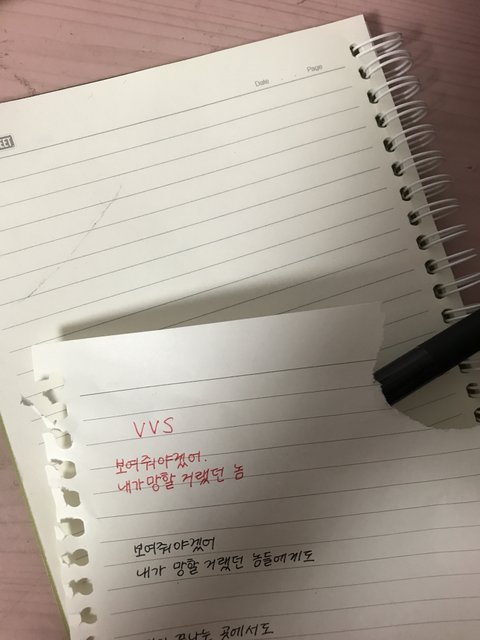 Date
Page
EET
VVS
보여줘야겠어.
내가 망할 거랬던 놈
보여줘야겠어
내가 망할 거랬던 놈들에게도
곳에서도